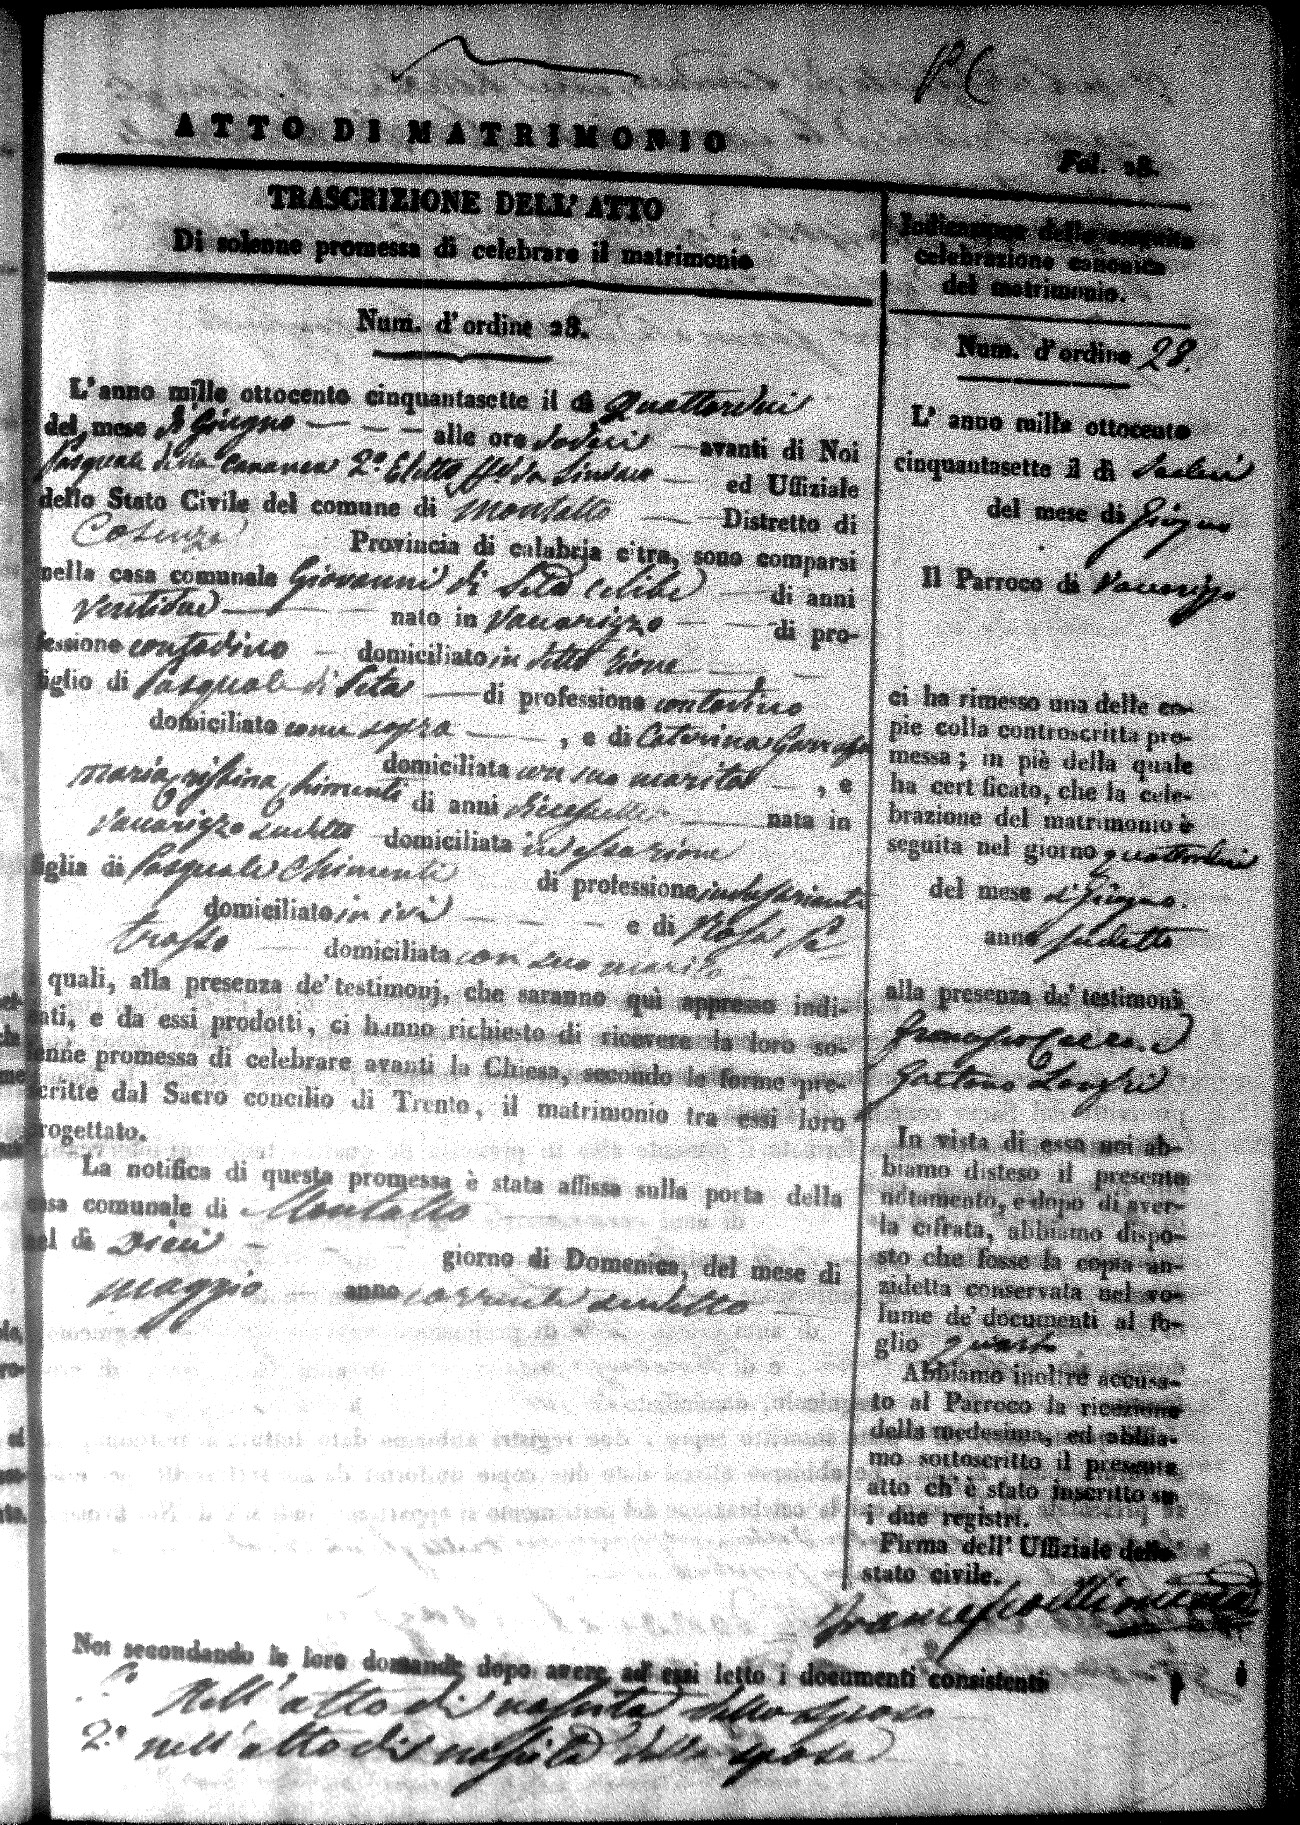 ATTO DI MATRIMONIO
Fol. 28.
TRASCRIZIONE DELL' ATTO
Di solenne promessa di celebrare il matrimonio
Num. d'ordine 28.
L'anno mille ottocento cinquantasette il dì Quattordici
del mese di Giugno alle ore dodeci avanti di Noi
Pasquale Cananea 2.º Eletto ff. da Sindaco ed Uffiziale
dello Stato Civile del comune di Montalto Distretto di
Cosenza Provincia di calabria citra, sono comparsi
nella casa comunale Giovanni di Seta celibe di anni
ventidue nato in Vaccarizzo di pro-
fessione contadino domiciliato in detto
figlio di Pasquale di Seta di professione contadino
domiciliato come sopra , e di Caterina
domiciliata con suo marito , e
Maria Chimenti di anni nata in
Vaccarizzo sudetto domiciliata in
figlia di Pasquale Chimenti di professione
domiciliato in ivi e di Rosa
domiciliata con suo marito
i quali, alla presenza de' testimonj, che saranno quì appresso indi-
cati, e da essi prodotti, ci hanno richiesto di ricevere la loro so-
lenne promessa di celebrare avanti la Chiesa, secondo le forme pre-
scritte dal Sacro concilio di Trento, il matrimonio tra essi loro
progettato.
La notifica di questa promessa è stata affissa sulla porta della
casa comunale di Montalto
nel dì Dieci giorno di Domenica, del mese di
maggio anno corrente sudetto
Noi secondando le loro domande dopo avere ad essi letto i documenti consistenti
1.º Nell'atto di nascita dello sposo
2.º nell'atto di nascita della sposa
Indicazione della seguita
celebrazione canonica
del matrimonio.
Num. d'ordine 28.
L' anno mille ottocento
cinquantasette il dì Sedeci
del mese di Giugno
Il Parroco di Vaccarizzo
ci ha rimesso una delle co-
pie colla controscritta pro-
messa; in piè della quale
ha certificato, che la cele-
brazione del matrimonio è
seguita nel giorno quattordici
del mese di Giugno.
anno sudetto
alla presenza de' testimonj
Francesco
Gaetano
In vista di essa noi ab-
biamo disteso il presente
notamento, e dopo di aver-
la cifrata, abbiamo dispo-
sto che fosse la copia an-
zidetta conservata nel vo-
lume de' documenti al fo-
glio
Abbiamo inoltre accusa-
to al Parroco la ricezione
della medesima, ed abbia-
mo sottoscritto il presente
atto ch' è stato inscritto su
i due registri.
Firma dell' Uffiziale dello
stato civile.
Francesco